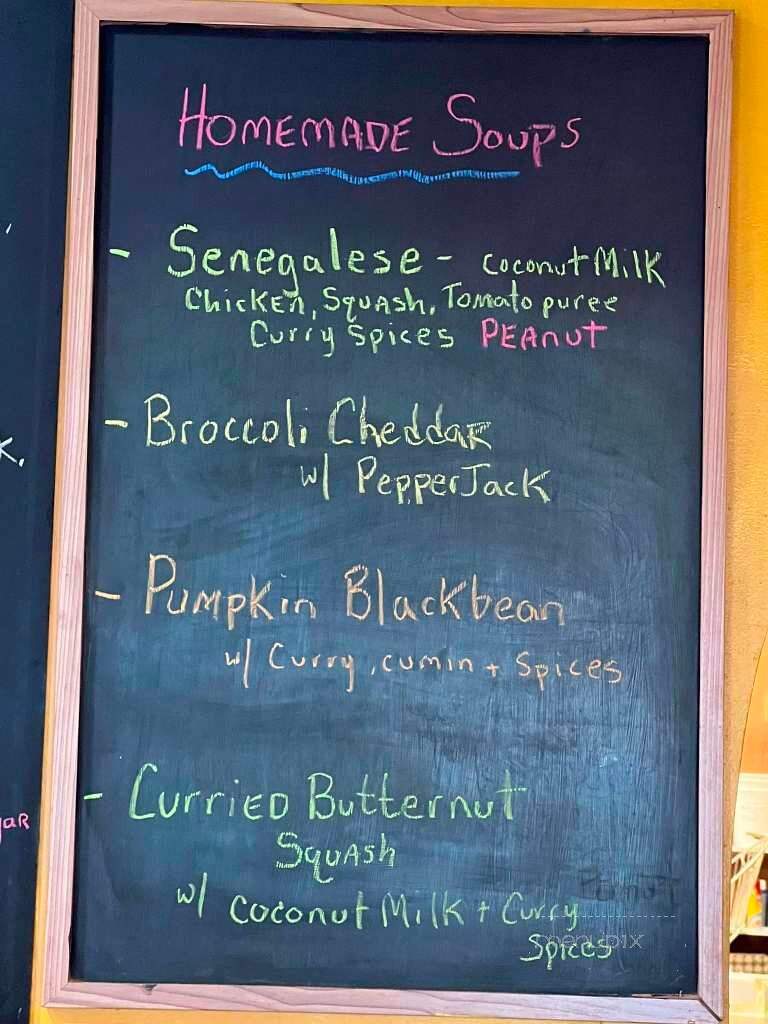 HOMEMADE SOUPS
- Senegalese - coconut Milk
Chicken, Squash, Tomato puree
Curry Spices PEAnuT
- Broccoli Cheddar
w/ PepperJack
- Pumpkin Blackbean
w/ Curry, cumin + Spices
- CurriED Butternut
Squash
w/ coconut Milk + Curry
Spices
PeanuT
menupix
K.
gar